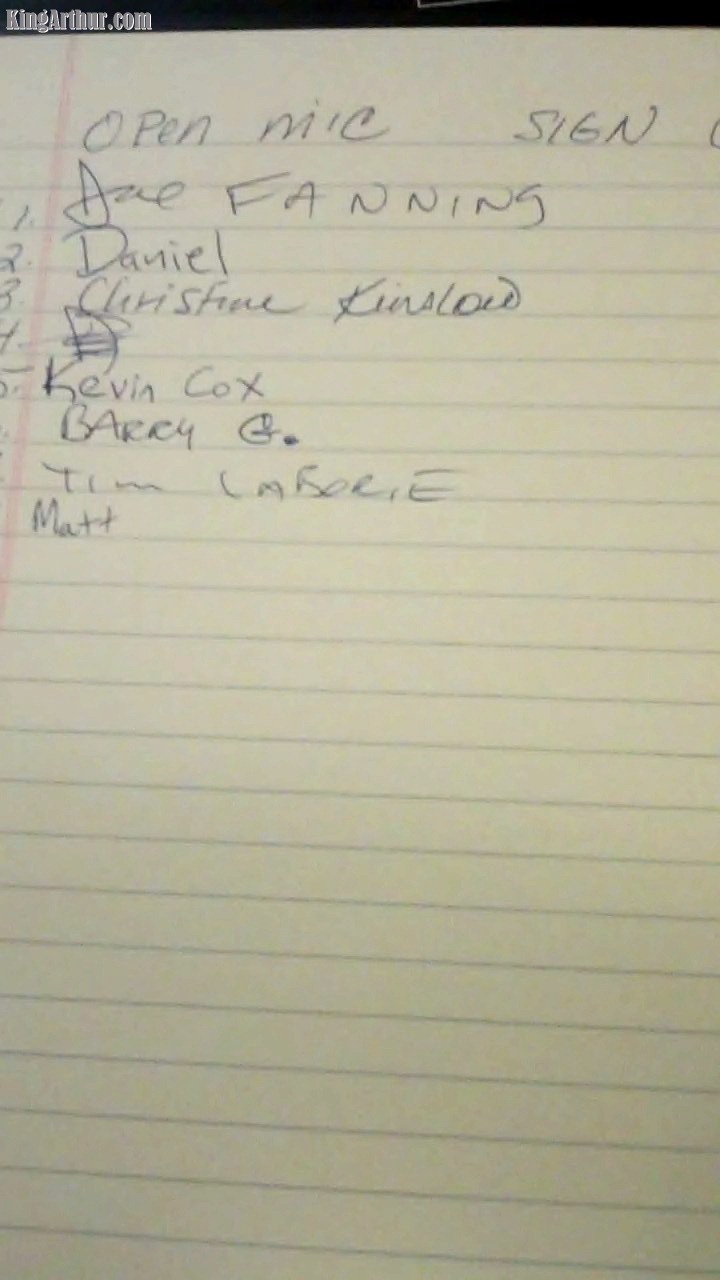 KingArthur.com
OPen mic SIGN
1. FANNING
2. Daniel
3. Christine Kinslow
4.
5. Kevin Cox
BARRY G.
Tim LABORIE
Matt